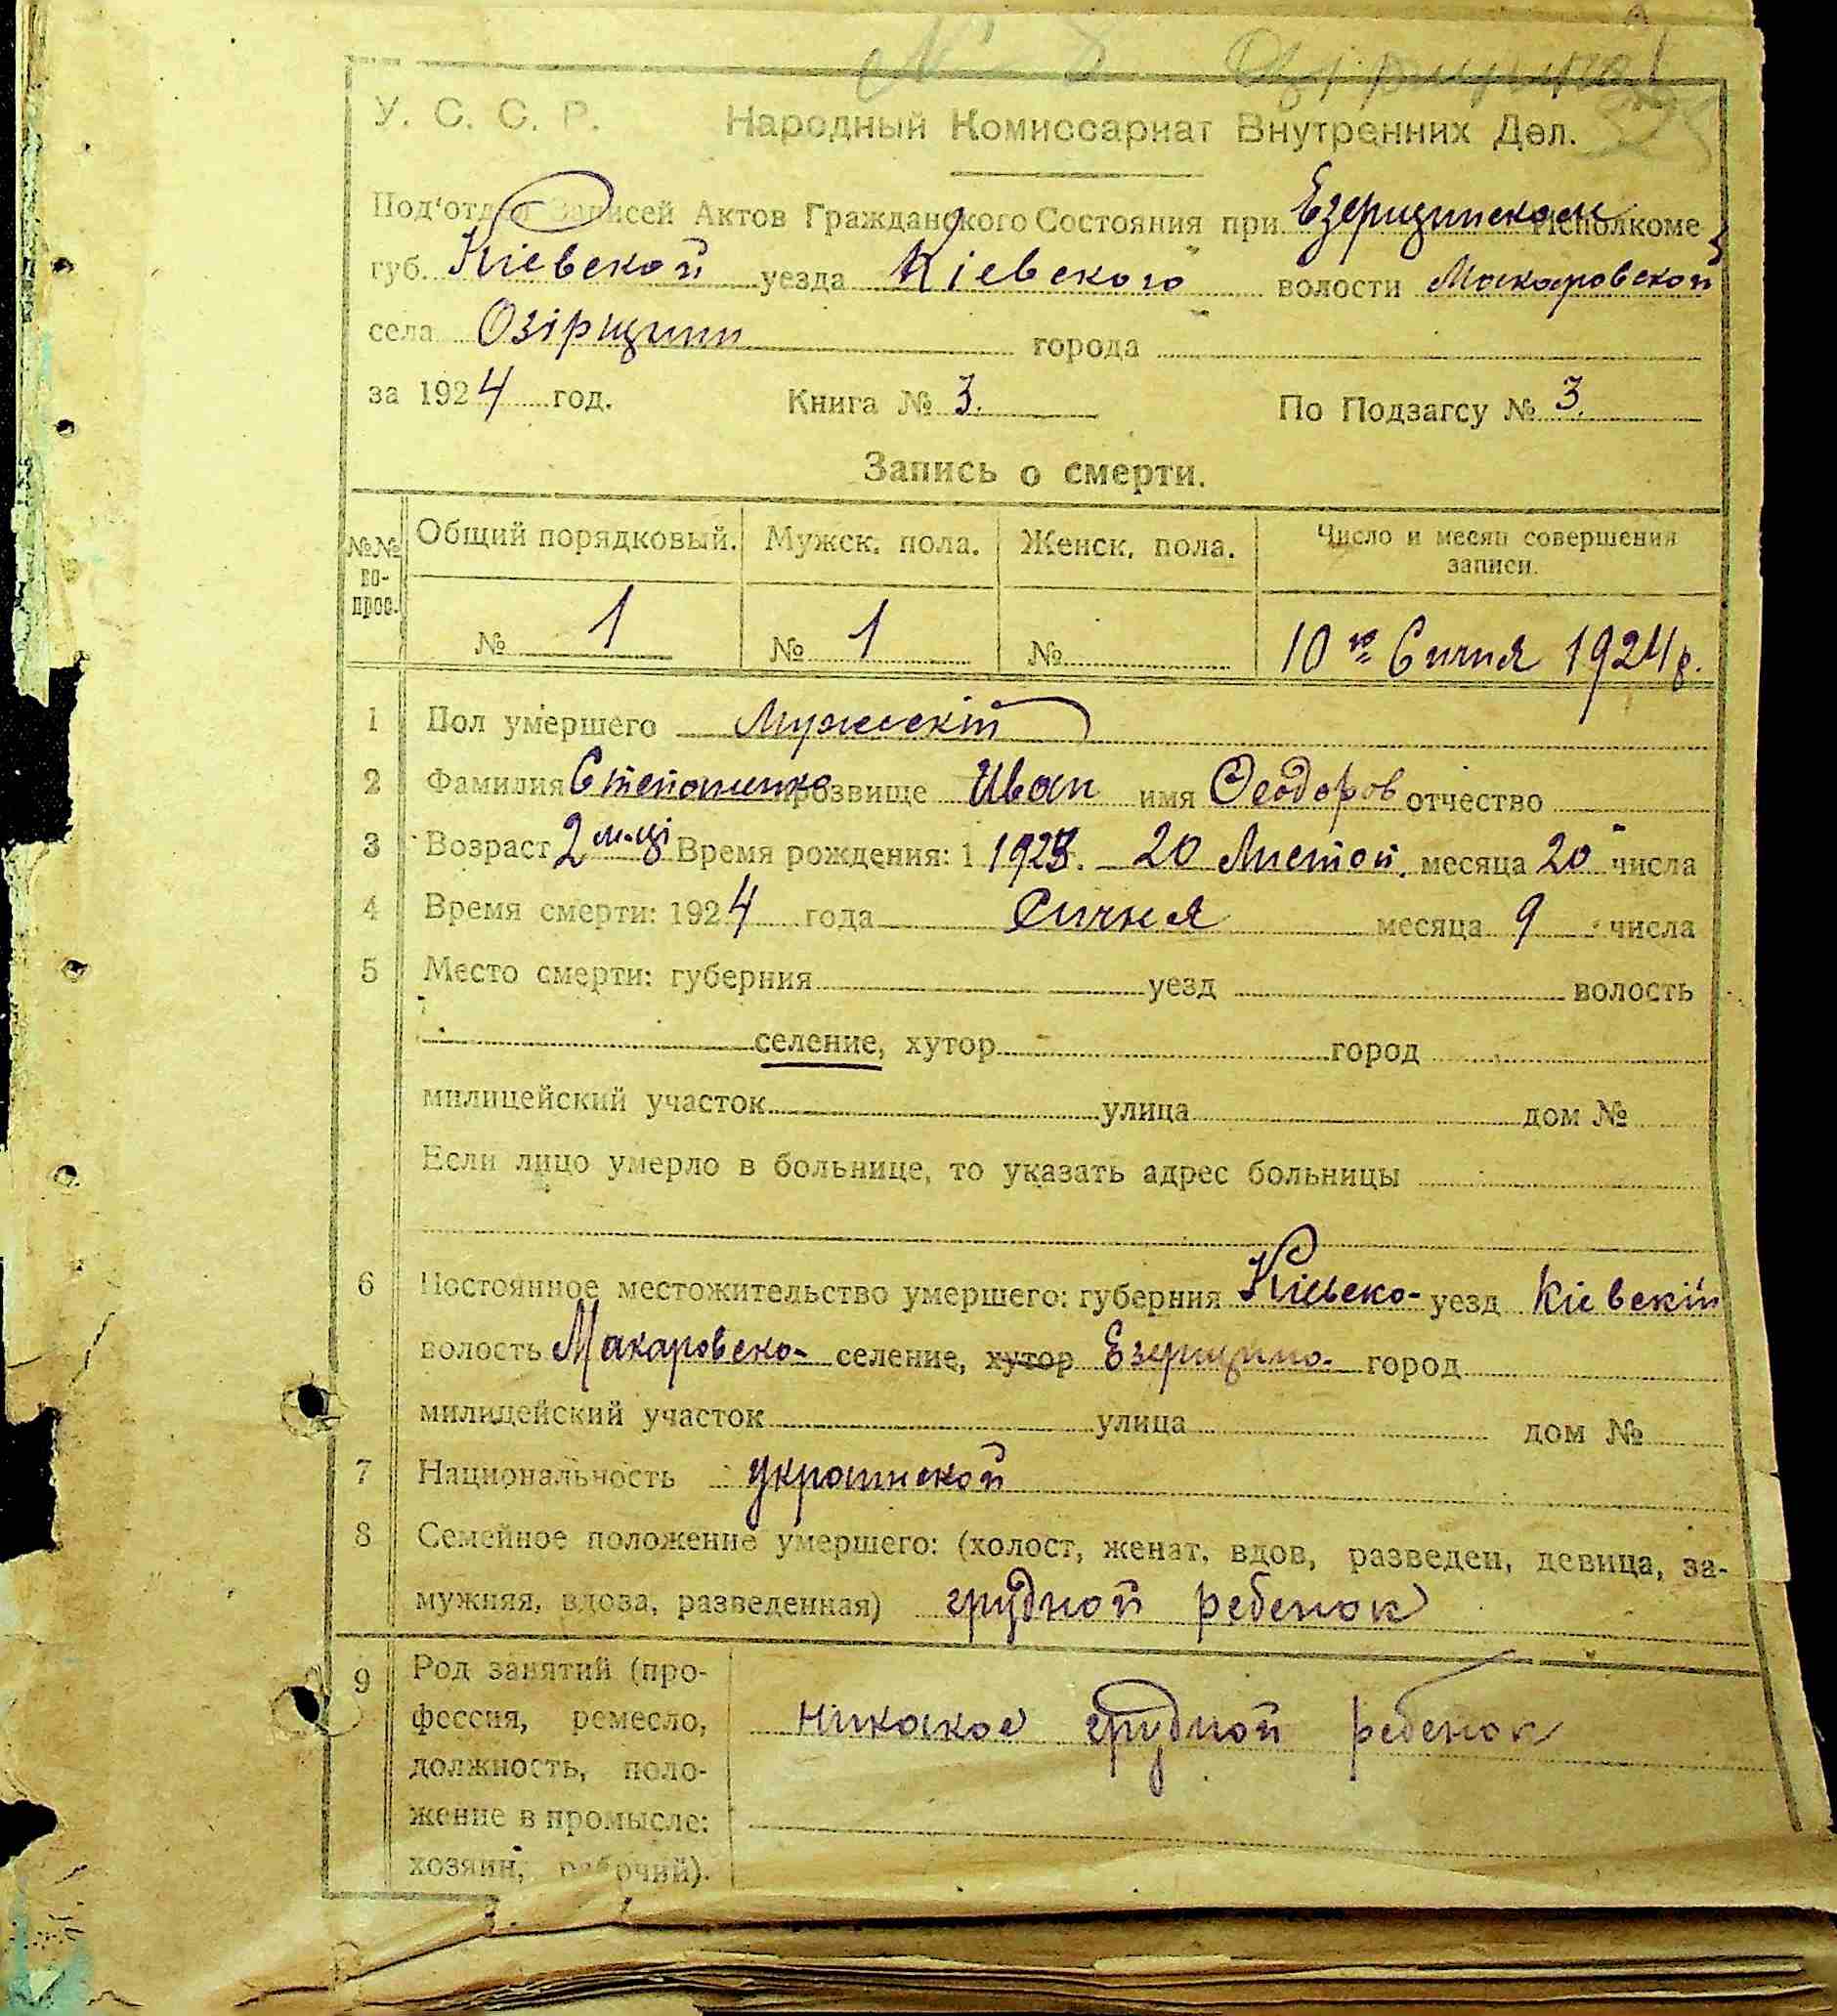 № 8
У. С. С. Р. Народный Комиссариат Внутренних Дел.
Под'отдел Записей Актов Гражданского Состояния при Езерщинском Исполкоме
губ. Кіевской уезда Кіевского волости Макаровской
села Озірщини города
за 1924 год. Книга № 3. По Подзагсу № 3.
Запись о смерти.
№№ во- прос. Общий порядковый. Мужск. пола. Женск. пола. Число и месяц совершения записи.
№ 1 № 1 № 10го Сичня 1924 р.
1 Пол умершего Мужескій
2 Фамилия Степаненко прозвище Иван имя Феодоров отчество
3 Возраст 2 м-ці Время рождения: 1 1923. 20 Листоп. месяца 20 числа
4 Время смерти: 1924 года Сичня месяца 9 числа
5 Место смерти: губерния уезд волость
селение, хутор город
милицейский участок улица дом №
Если лицо умерло в больнице, то указать адрес больницы
6 Постоянное местожительство умершего: губерния Кіевско- уезд Кіевскій
волость Макаровско- селение, хутор Езерщино. город
милицейский участок улица дом №
7 Национальность украинской
8 Семейное положение умершего: (холост, женат, вдов, разведен, девица, за-
мужняя, вдова, разведенная) грудной ребенок
9 Род занятий (про-
фессия, ремесло, никакое грудной ребенок
должность, поло-
жение в промысле:
хозяин, рабочий).